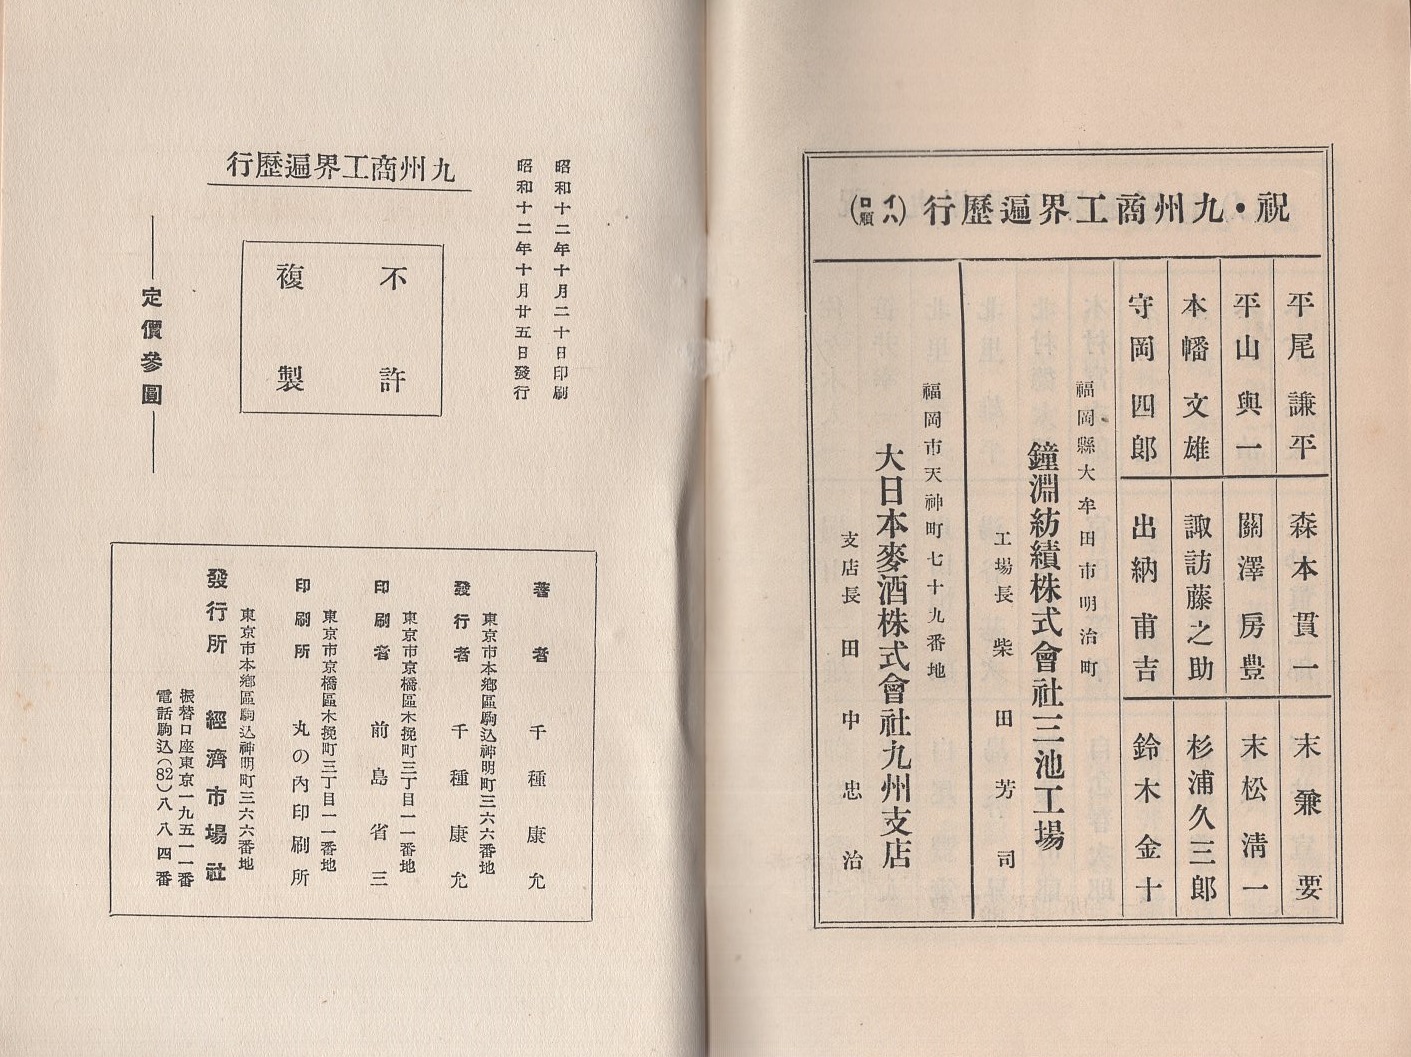 祝・九州商工界遍歷行(イロハ順)
平尾謙平
平山與一
本幡文雄
守岡四郎
森本貫一
關澤房豊
諏訪藤之助
出納甫吉
末兼要
末松淸一
杉浦久三郎
鈴木金十
福岡縣大牟田市明治町
鐘淵紡績株式會社三池工場
工場長 柴田芳司
福岡市天神町七十九番地
大日本麥酒株式會社九州支店
支店長 田中忠治
昭和十二年十月二十日印刷
昭和十二年十月廿五日發行
九州商工界遍歷行
不許
複製
定價參圓
著者 千種康允
東京市本鄕區駒込神明町三六六番地
發行者 千種康允
東京市京橋區木挽町三丁目一一番地
印刷者 前島省三
東京市京橋區木挽町三丁目一一番地
印刷所 丸の內印刷所
東京市本鄕區駒込神明町三六六番地
發行所 經濟市場社
振替口座東京一九五一一番
電話駒込(82)八八四番